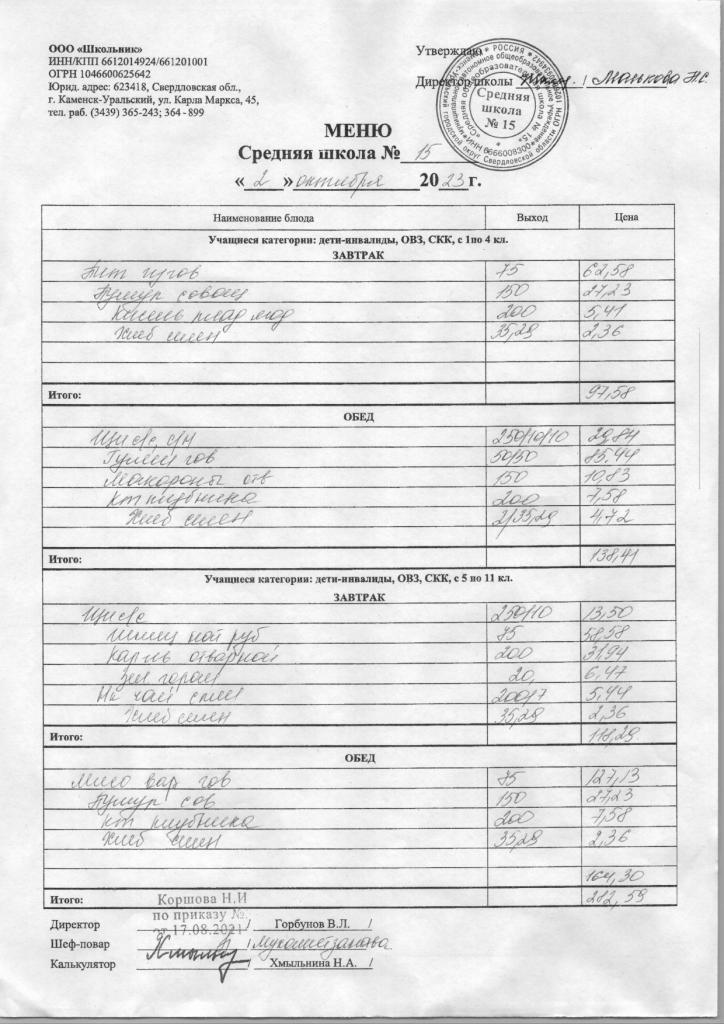 ООО «Школьник»
ИНН/КПП 6612014924/661201001
ОГРН 1046600625642
Юрид. адрес: 623418, Свердловская обл.,
г. Каменск-Уральский, ул. Карла Маркса, 45,
тел. раб. (3439) 365-243; 364 - 899
Утверждаю
Директор школы / Манькова Н.С.
Средняя
школа
№ 15
МЕНЮ
Средняя школа № 15
« 2 » октября 2023 г.
Наименование блюда Выход Цена
Учащиеся категории: дети-инвалиды, ОВЗ, СКК, с 1по 4 кл.
ЗАВТРАК
75 62,58
150 27,23
Кисель плод яг 200 5,41
Хлеб пшен 35,29 2,36
Итого: 97,58
ОБЕД
250/10/10 29,84
Гуляш гов 50/50 85,44
Макароны отв 150 10,83
Кт клубника 200 7,58
Хлеб пшен 2/35,29 4,72
Итого: 138,41
Учащиеся категории: дети-инвалиды, ОВЗ, СКК, с 5 по 11 кл.
ЗАВТРАК
250/10 13,50
75 58,58
Карт отварной 200 31,94
Зел горош 20, 6,47
чай 200/7 5,44
Хлеб пшен 35,29 2,36
Итого: 118,29
ОБЕД
Мясо вар гов 75 127,13
сов 150 27,23
Кт клубника 200 7,58
Хлеб пшен 35,29 2,36
164,30
Итого: 282,59
Коршова Н.И
по приказу №.
от 17.08.2021
Директор / Горбунов В.Л. /
Шеф-повар / Мухаметзанова
Калькулятор / Хмыльнина Н.А. /